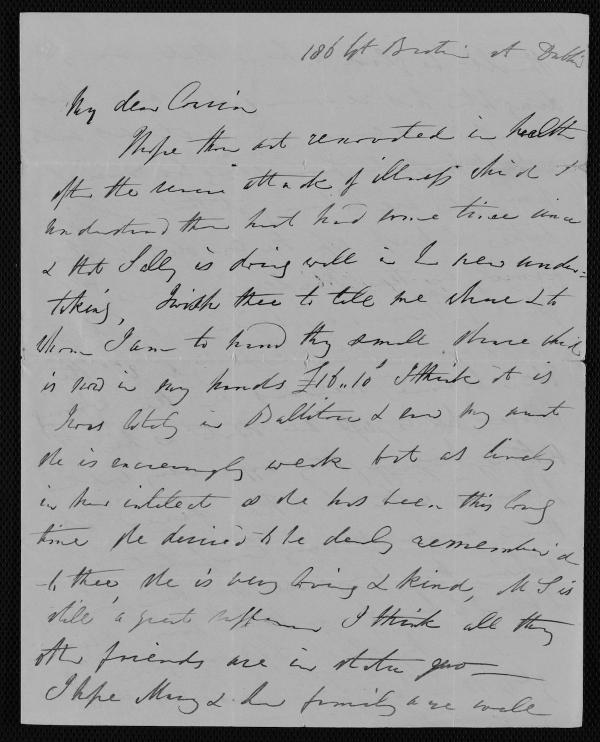 186 Gt Dublin
My dear Cousin
I hope thou art renovated in health
after the severe attack of illness which I
understand thou hast had some time since
& that Sally is doing well in her new under-
taking, I wish thee to tell me where & to
whom I am to hand thy small share which
is now in my hands £16..10s I think it is
I was lately in Ballitore & saw my aunt
She is encreasingly weak but as lively
in her intellect as she has been this long
time She desired to be dearly remember'd
to thee She is very loving & kind, M S is
still a great sufferer I think all thy
other friends are in statu quo—
I hope Mary & her family are well